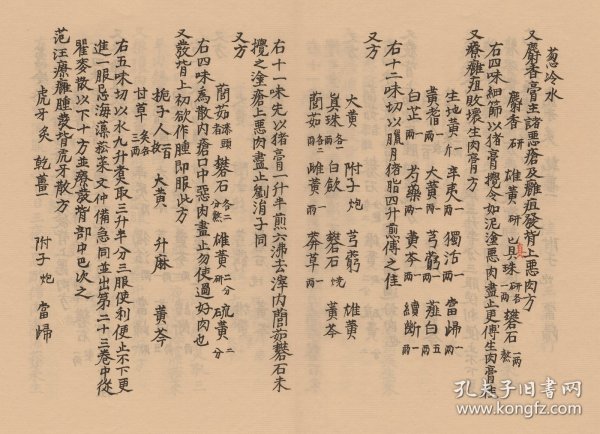 葱冷水
又麝香膏主諸惡瘡及癰疽發背上惡肉方
麝香 研 雄黃 研 真珠 研各一兩 礬石 一兩熬
右四味細篩以猪膏攪令如泥塗惡肉盡止更傅生肉膏佳
又療癰疽敗壞生肉膏方
生地黃 一斤 辛夷 一兩 獨活 一兩 當歸 一兩
黃耆 一兩 大黃 一兩 芎藭 一兩 薤白 五兩
白芷 一兩 芍藥 一兩 黃芩 一兩 續斷 一兩
右十二味切以臘月猪脂四升煎傅之佳
又方
大黃 附子 炮 芎藭 雄黃
真珠 各一兩 白歛 礬石 燒 黃芩
䕡茹 各二兩 雌黃 一兩 莽草 一兩
右十一味先以猪膏一升半煎六沸去滓内䕡茹礬石末
攪之塗瘡上惡肉盡止劉涓子同
又方
䕡茹 漆頭者 礬石 各二分熬 雄黃 二分研 硫黃 二分研
右四味為散内瘡口中惡肉盡止勿使過好肉也
又發背上初欲作腫即服此方
梔子人 百枚 大黃 升麻 黃芩
甘草 炙各三兩
右五味切以水九升煮取三升半分三服使利便止不下更
進一服忌海藻菘菜文仲備急同並出第二十三卷中從
瞿麥散以下十方並療發背部中也次之
范汪療癰腫發背虎牙散方
虎牙 炙 乾薑 一 附子 炮 當歸
孔夫子旧书网
www.kongfz.com